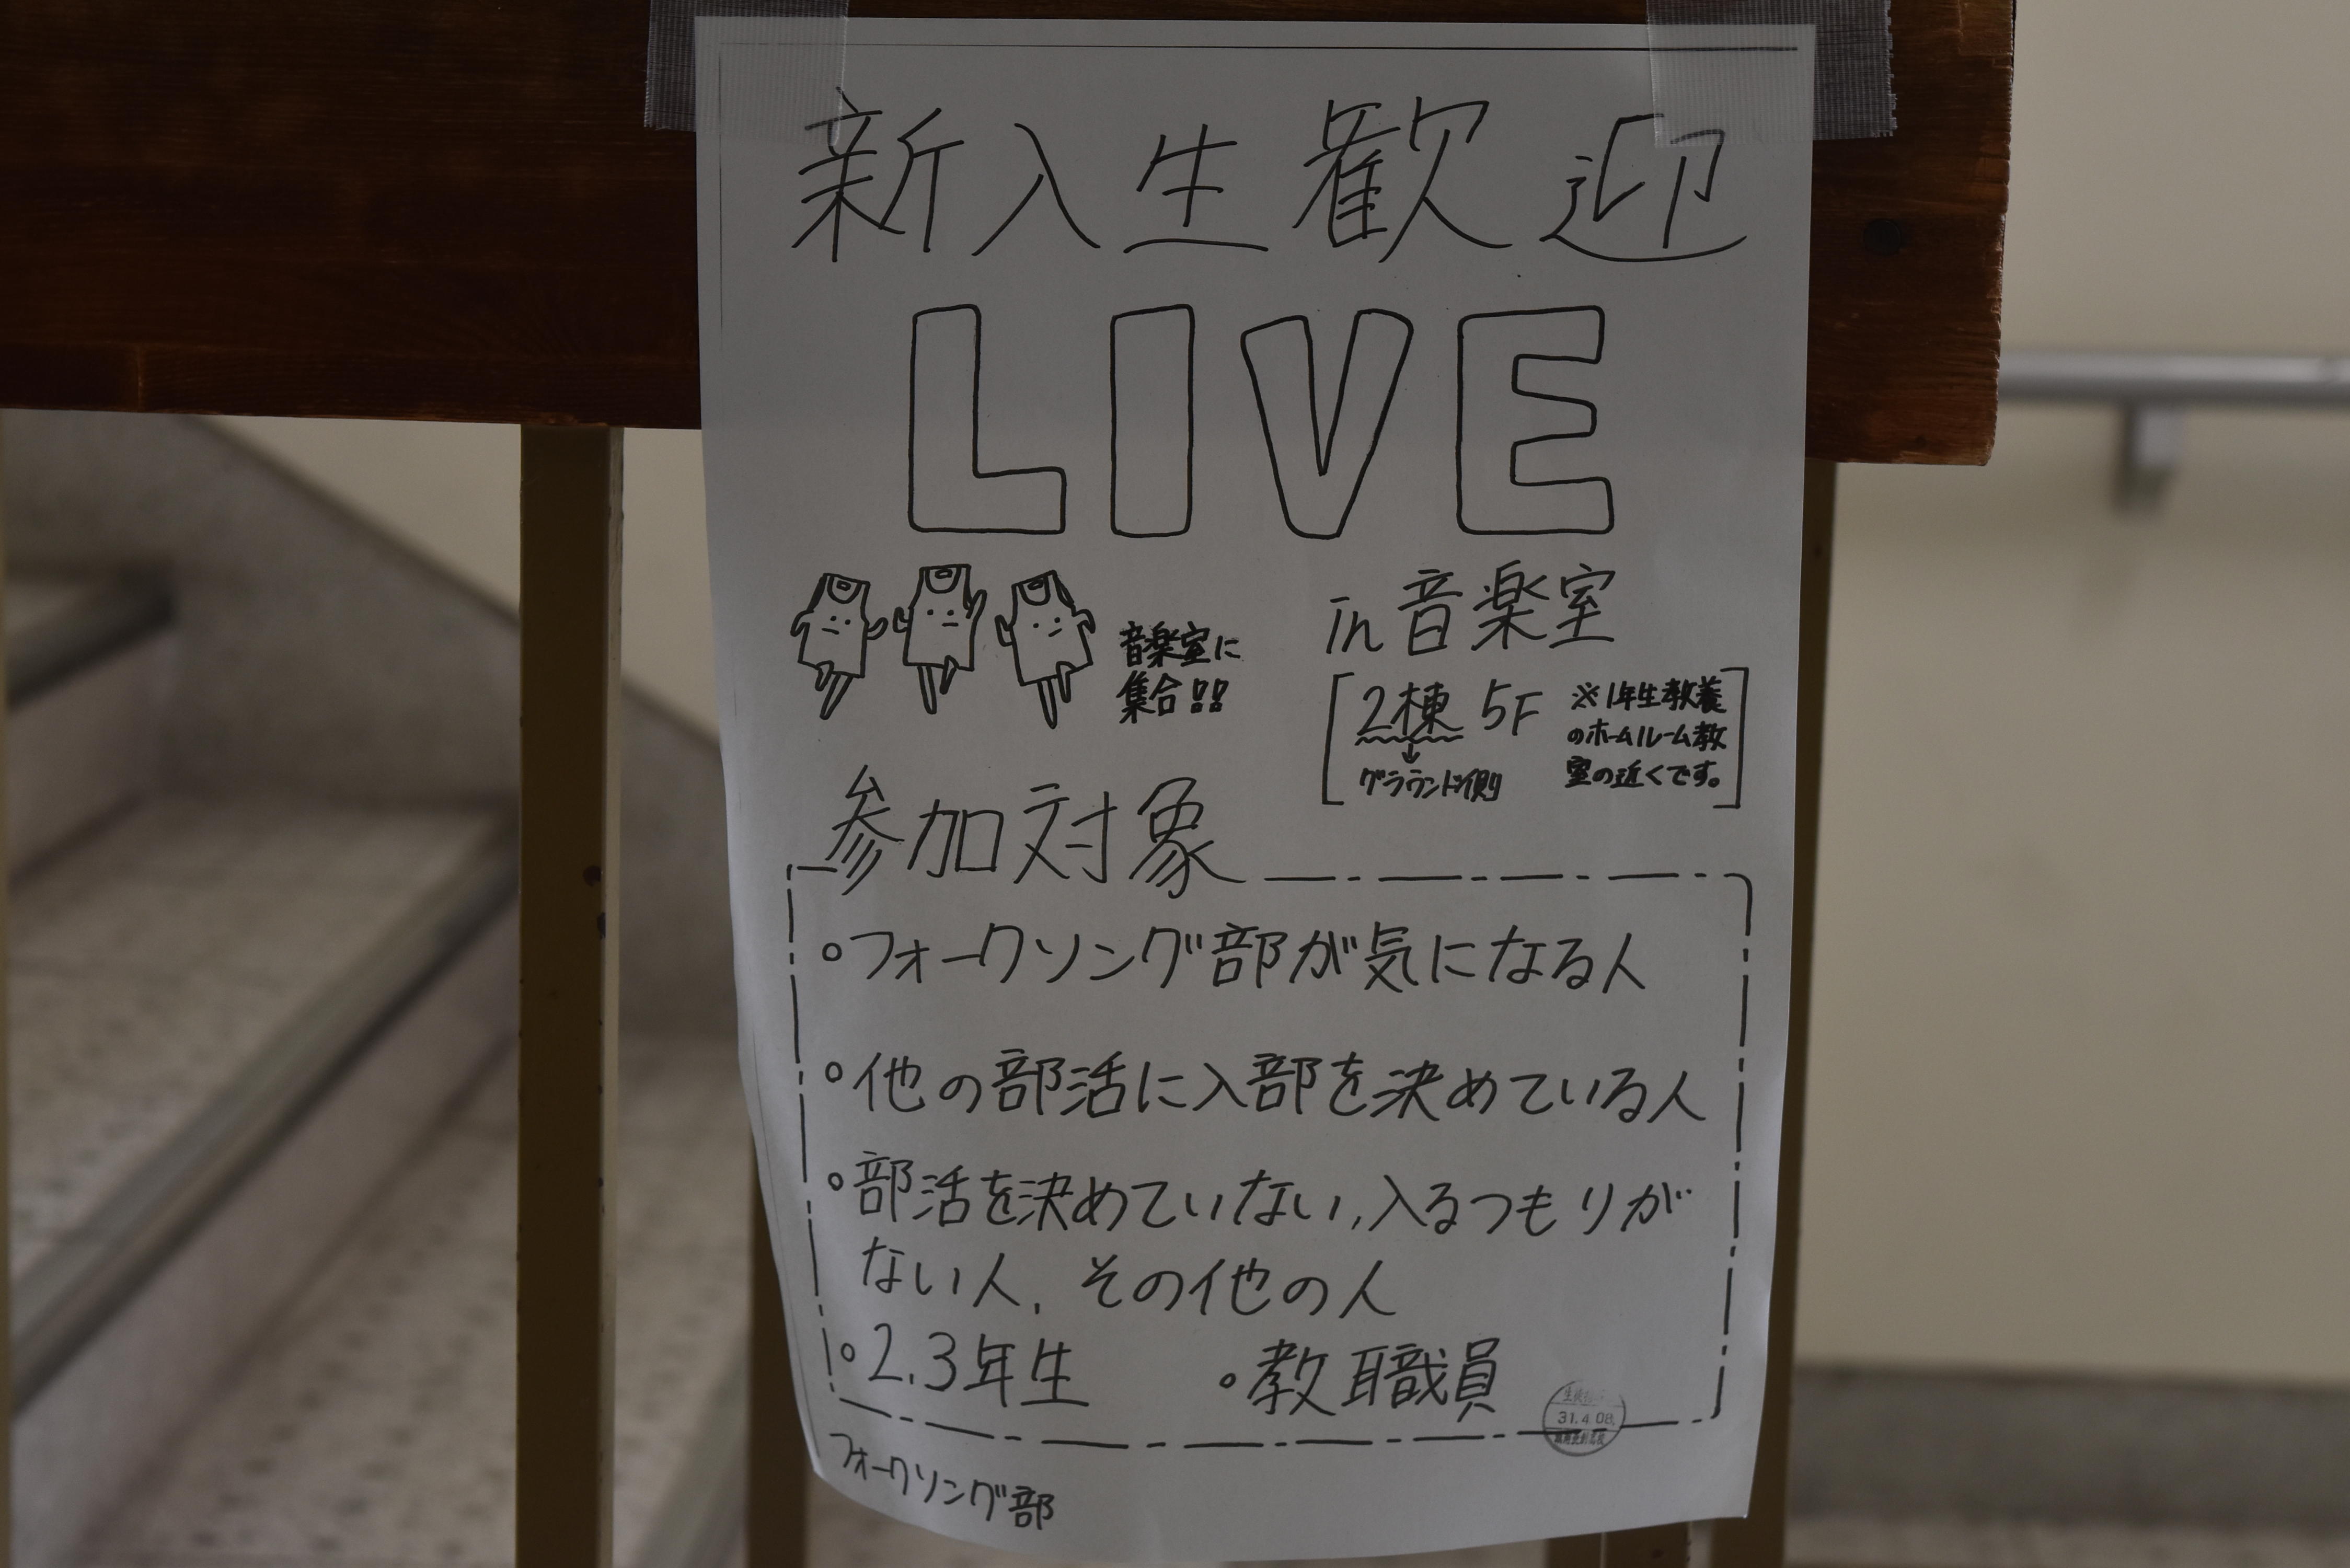 新入生歓迎
LIVE
音楽室に
集合!!
in 音楽室
2棟 5F
↓
グラウンド側
※1年生教養
のホームルーム教
室の近くです。
参加対象
。フォークソング部が気になる人
。他の部活に入部を決めている人
。部活を決めていない,入るつもりが
ない人, その他の人
。2.3年生 。教職員
31.4.08.
フォークソング部